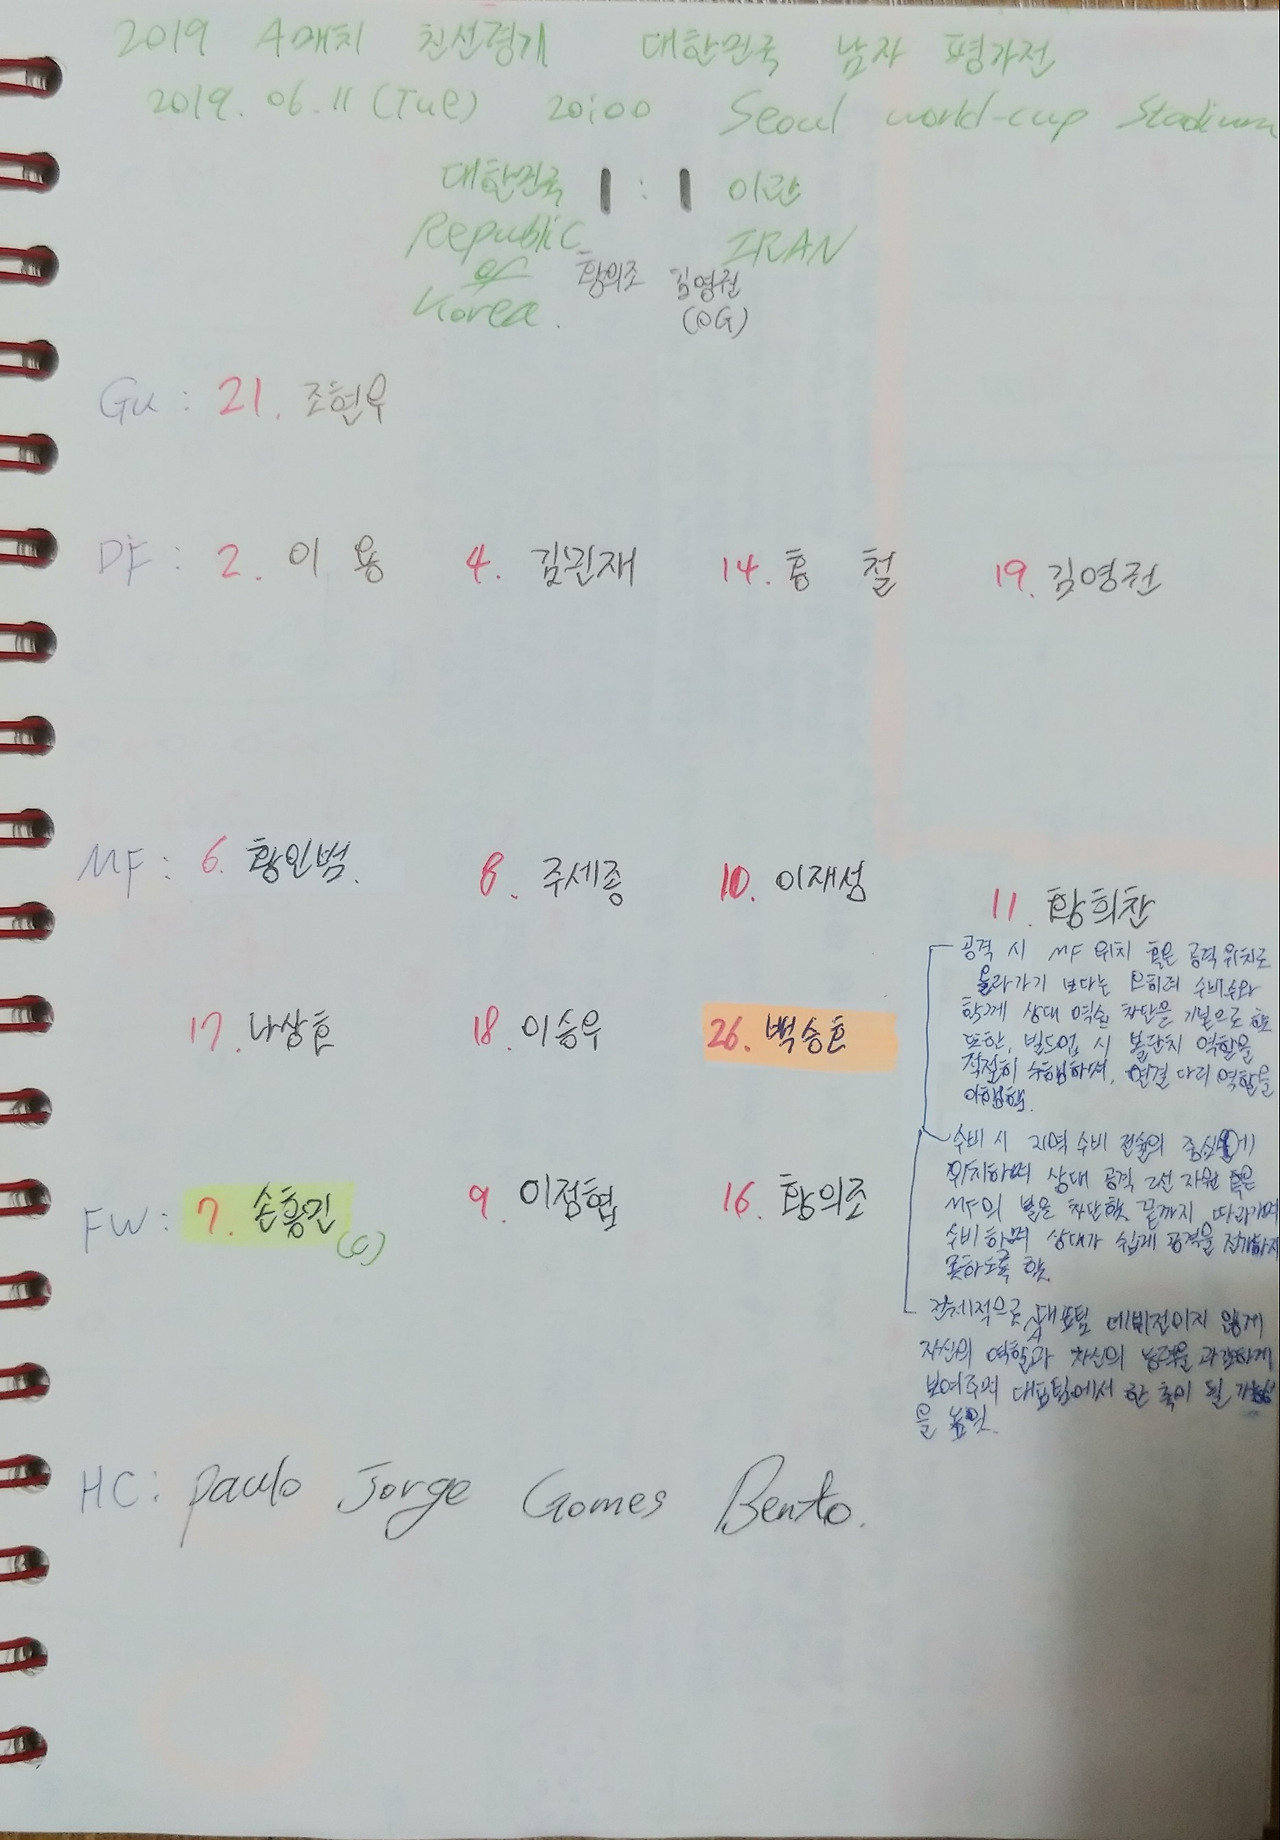 2019 A매치 친선경기 대한민국 남자 평가전
2019. 06. 11 (Tue) 20:00 Seoul world-cup Stadium
대한민국 1 : 1 이란
Republic of Korea. IRAN
황의조 김영권
(OG)
GK : 21. 조현우
DF : 2. 이 용 4. 김민재 14. 홍 철 19. 김영권
MF : 6. 황인범. 8. 주세종 10. 이재성 11. 황희찬
17. 나상호 18. 이승우 26. 백승호
공격 시 MF 위치 혹은 공격 위치로
올라가기 보다는 오히려 수비수와
함께 상대 역습 차단을 기본으로 함
또한, 빌드업 시 볼단치 역할을
적절히 수행하며, 연결 다리 역할을
이행함.
수비 시 지역 수비 전술의 중심에
위치하며 상대 공격 2선 자원 혹은
MF의 볼을 차단함. 끝까지 따라가며
수비하며 상대가 쉽게 공격을 전개하지
못하도록 함.
전체적으로 대표팀 데뷔전이지 않게
자신의 역할과 자신의 능력을 과감하게
보여주며 대표팀에서 한 축이 될 가능성
을 높임.
FW : 7. 손흥민 (C) 9. 이정협 16. 황의조
HC : Paulo Jorge Gomes Bento.